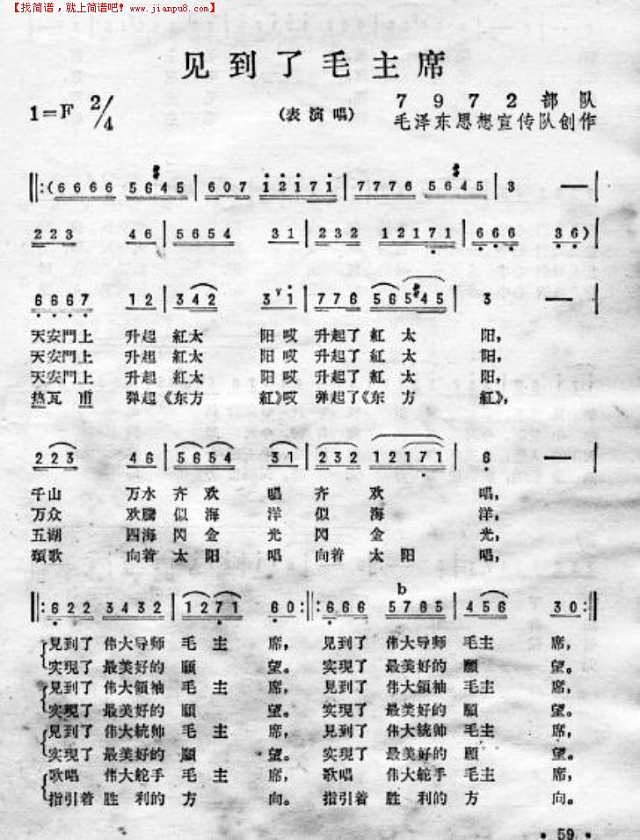 【找简谱,就上简谱吧!www.jianpu8.com】
见到了毛主席
1=F 2/4
(表演唱)
7972部队
毛泽东思想宣传队创作
(6666 5645 | 607 1217 1 | 7776 5645 | 3 —
223 46 | 5654 31 | 232 12171 | 666 36)
6667 12 | 342 31 | 776 56545 | 3 —
天安門上 升起 紅太 阳哎 升起了紅太 阳,
天安門上 升起 紅太 阳哎 升起了紅太 阳,
天安門上 升起 紅太 阳哎 升起了紅太 阳,
热瓦甫 弹起《东方 紅》哎 弹起了《东方 紅》,
223 46 | 5654 31 | 232 12171 | 6 —
千山 万水齐欢 唱齐欢 唱,
万众 欢騰似海 洋似海 洋,
五湖 四海閃金 光閃金 光,
頌歌 向着太阳 唱向着太阳 唱,
622 3432 | 1271 60 :‖: 666 5765 | 456 30 :‖
b
見到了 伟大导师 毛主 席, 見到了 伟大导师 毛主 席,
实現了 最美好的 願 望。 实現了 最美好的 願 望。
見到了 伟大領袖 毛主 席, 見到了 伟大領袖 毛主 席,
实現了 最美好的 願 望。 实現了 最美好的 願 望。
見到了 伟大統帅 毛主 席, 見到了 伟大統帅 毛主 席,
实現了 最美好的 願 望。 实現了 最美好的 願 望。
歌唱 伟大舵手 毛主 席, 歌唱 伟大舵手 毛主 席,
指引着 胜利的方 向。 指引着 胜利的方 向。
• 59 •